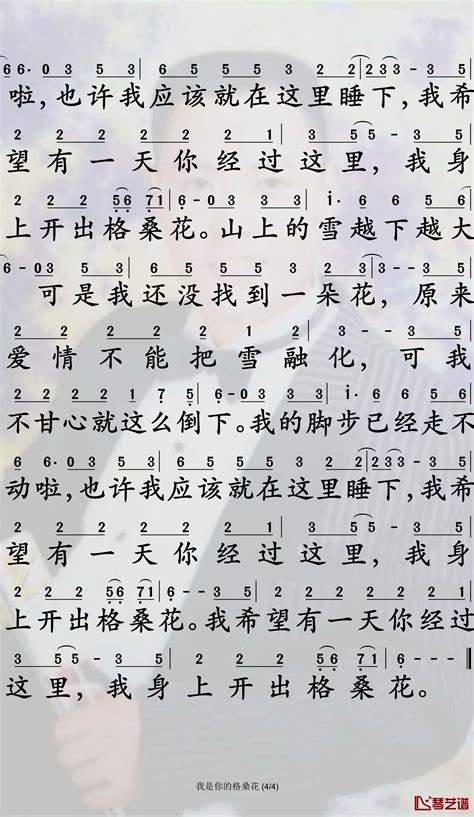 6 6· 0 3 5 3 | 6 5 5 5 3 2 2 | 2 3 3 - 3 5 |
啦,也许我应该就在这里睡下,我希
2 2 2 2 2 2 1 | 3 5 5 - 3 5 |
望有一天你经过这里,我身
2 2 2 5 6 7 1 | 6 - 0 3 3 3 | i· 6 6 5 6 |
上开出格桑花。山上的雪越下越大
6 - 0 3 5 3 | 5 3 5 3 2 2 | 2 3 3 - 3 5 |
可是我还没找到一朵花,原来
2 2 2 2 2 2 1 | 3 5 5 - 3 5 |
爱情不能把雪融化,可我
2 2 2 5 6 7 1 | 6 - 0 3 3 3 | i· 6 6 5 6 |
不甘心就这么倒下。我的脚步已经走不
6 6· 0 3 5 3 | 6 5 5 5 3 2 2 | 2 3 3 - 3 5 |
动啦,也许我应该就在这里睡下,我希
2 2 2 2 2 2 1 | 3 5 5 - 3 5 |
望有一天你经过这里,我身
2 2 2 5 6 7 1 | 6 - - 3 5 | 2 2 2 2 2 2 1 |
上开出格桑花。我希望有一天你经过
3 5 5 - 3 5 | 2 2 2 5 6 7 1 | 6 - - - ‖
这里,我身上开出格桑花。
我是你的格桑花 (4/4)
琴艺谱